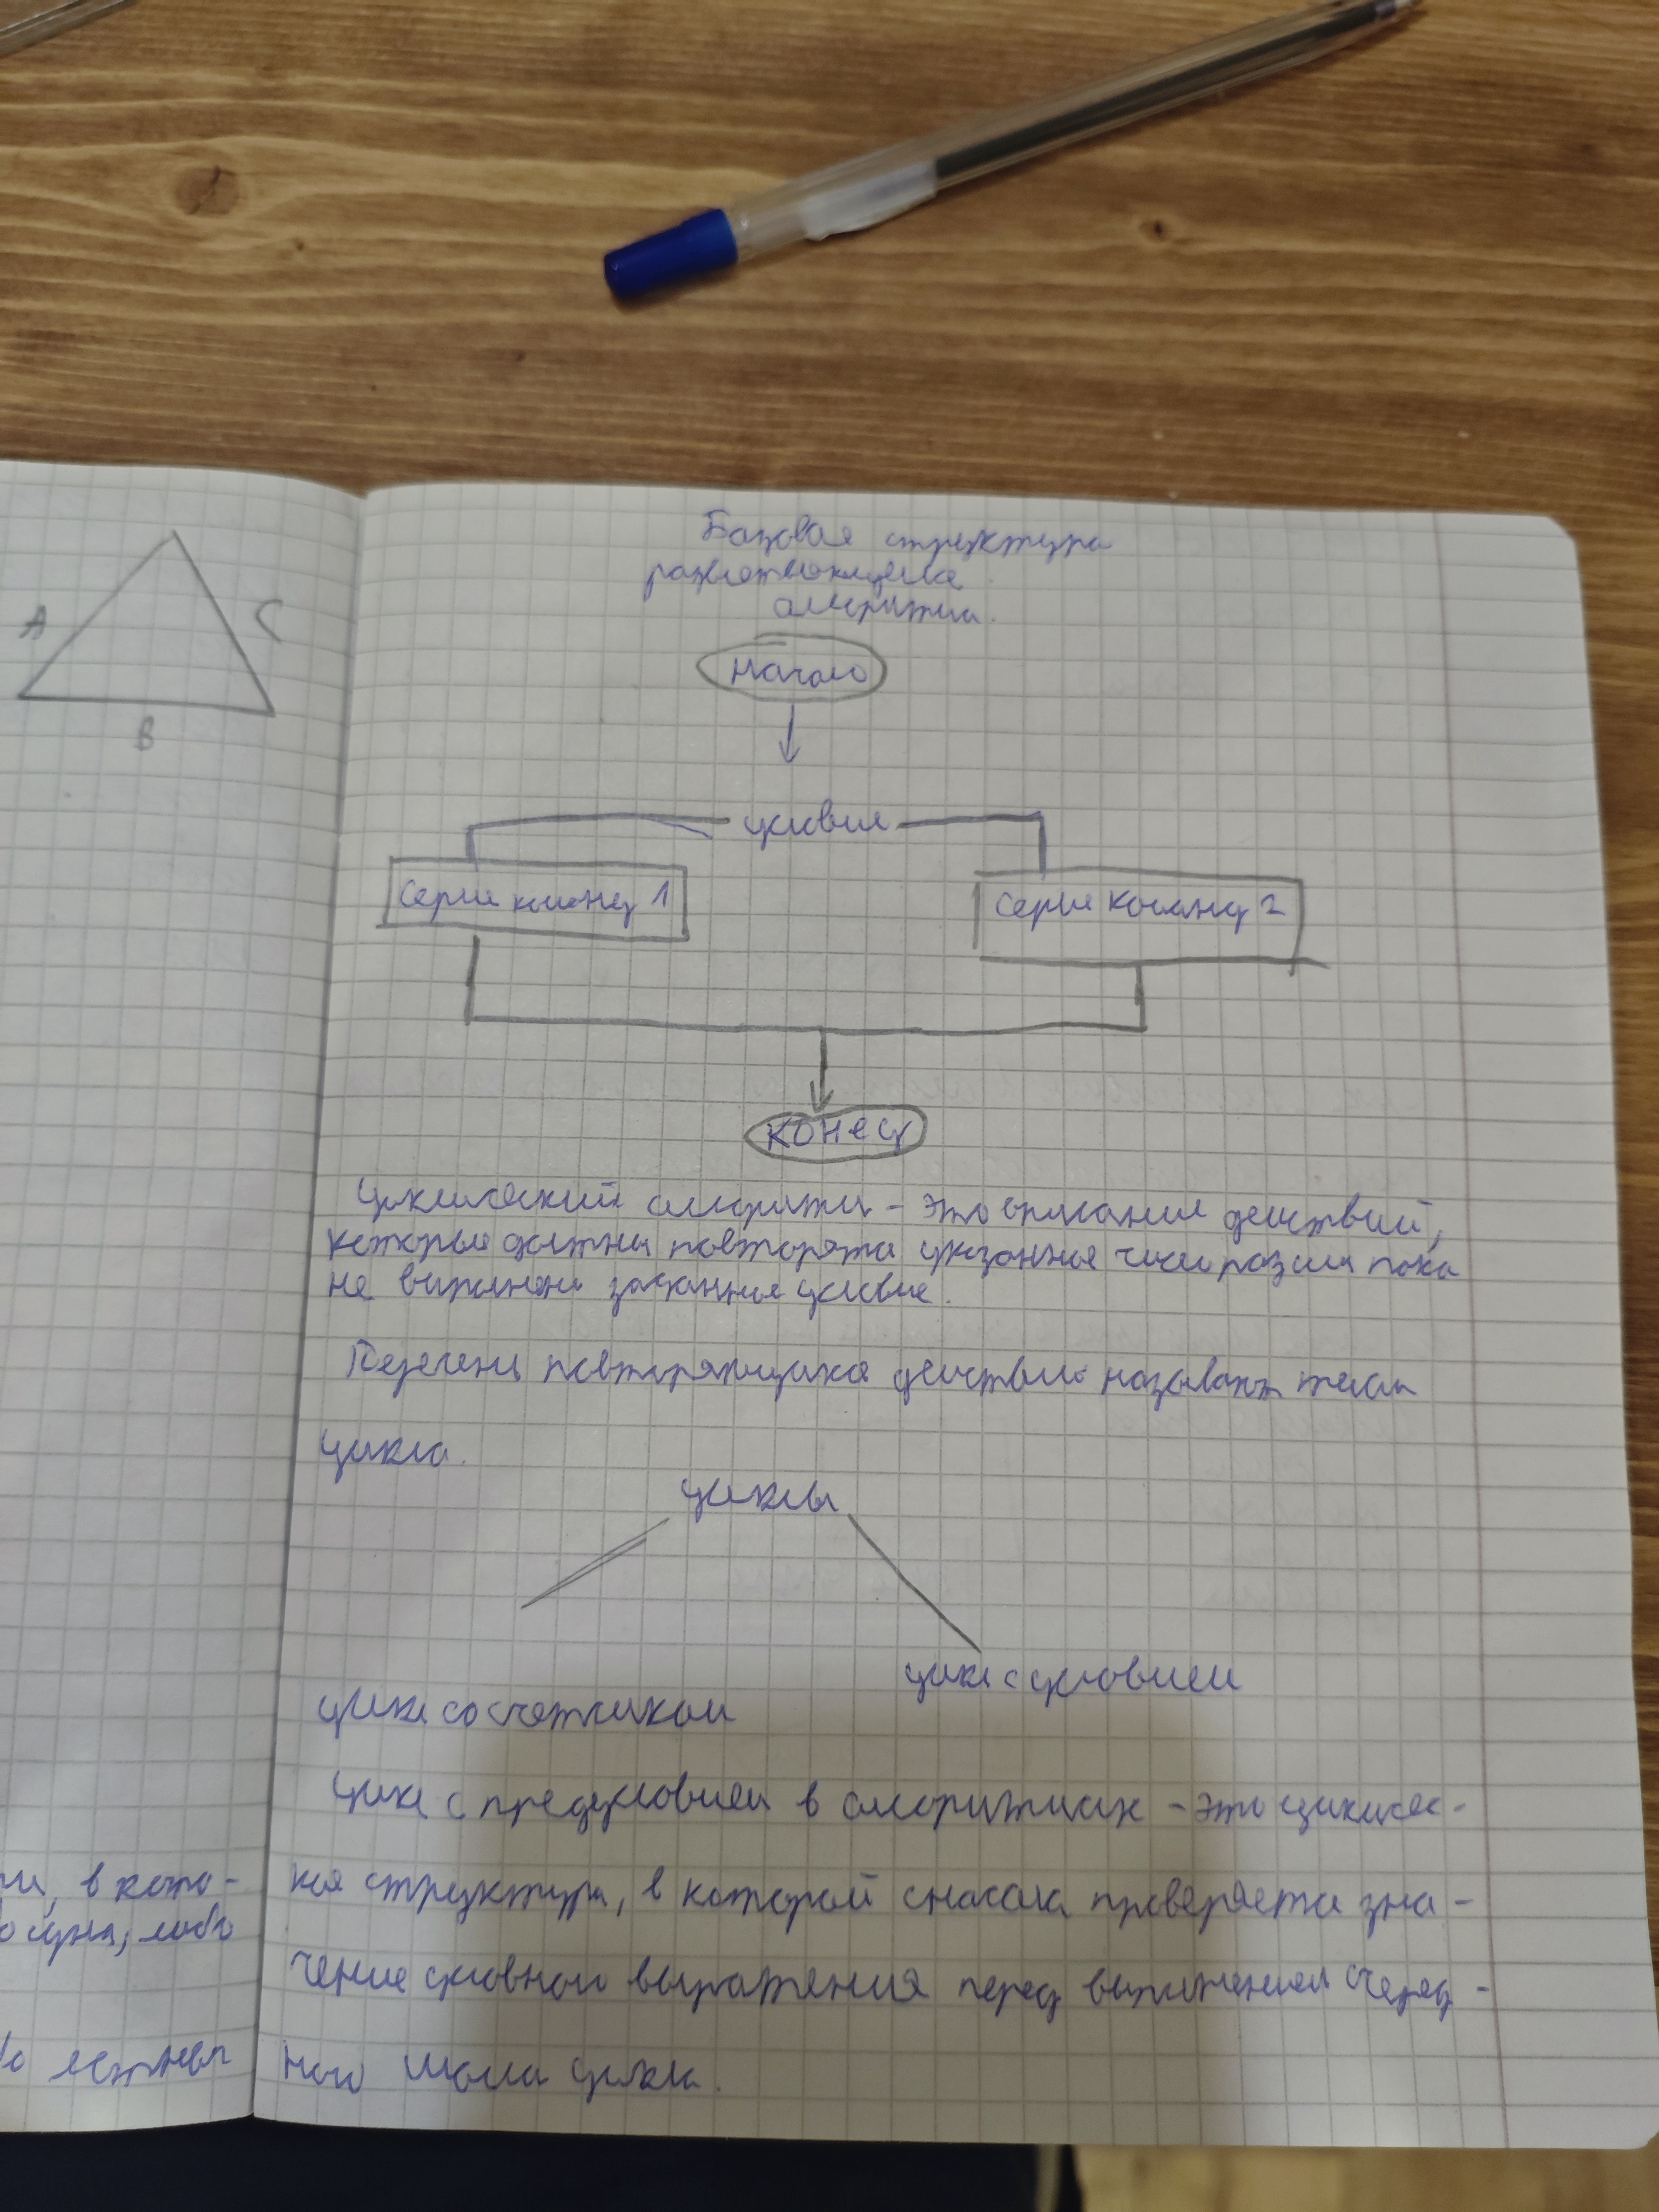 A
C
B
Базовая структура
разветвляющегося
алгоритма.
Начало
условие
Серия команд 1
Серия команд 2
конец
Циклический алгоритм - это описание действий,
которые должны повторяться указанное число раз или пока
не выполнено заданное условие.
Перечень повторяющихся действий называют телом
цикла.
циклы
цикл с условием
цикл со счетчиком
Цикл с предусловием в алгоритмах - это цикличес-
кая структура, в которой сначала проверяется зна-
чение условного выражения перед выполнением очеред-
ного шага цикла.
в кото-
либо